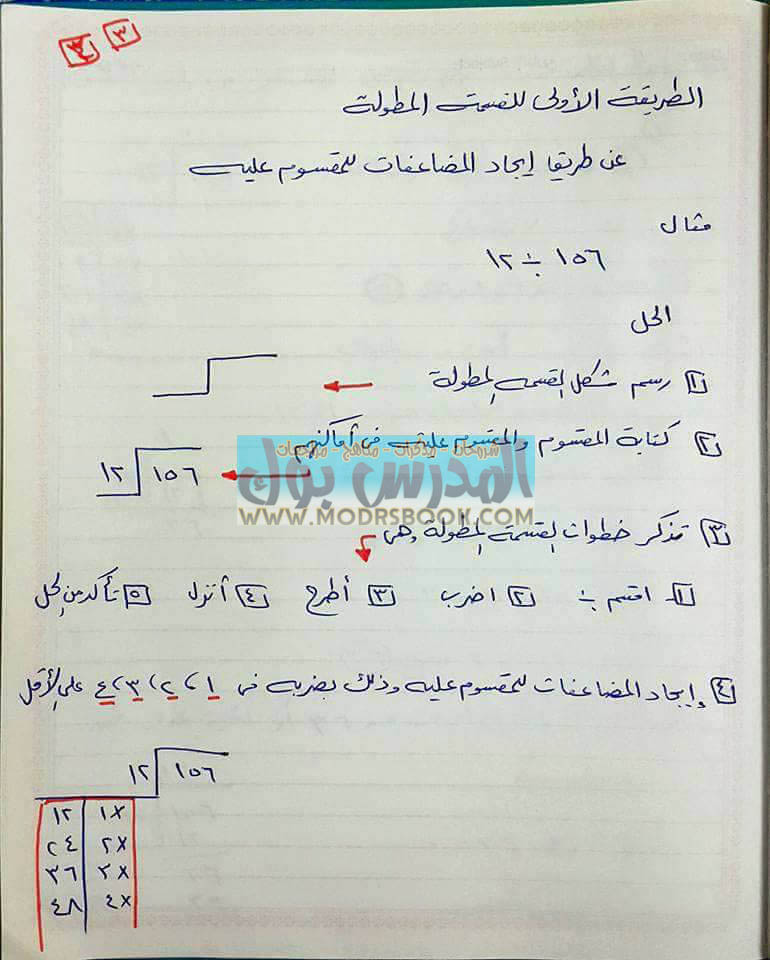 ٣ ٣
الطريقة الأولى للقسمة المطولة
عن طريقا إيجاد المضاعفات للمقسوم عليه
مثال
١٥٦ ÷ ١٢
الحل
١ رسم شكل القسمة المطولة
٢ كتابة المقسوم والمقسوم عليه فى أماكنهم
١٢ ١٥٦
شروحات - مذكرات - مناهج - مراجعات
المدرس بوك
WWW.MODRSBOOK.COM
٣ تذكر خطوات القسمة المطولة وهى
١ اقسم ÷ ٢ اضرب ٣ أطرح ٤ أنزل ٥ تأكد من الحل
٤ إيجاد المضاعفات للمقسوم عليه وذلك بضربه فى ١ ، ٢ ، ٣ ، ٤ على الأقل
١٢ ١٥٦
١× ١٢
٢× ٢٤
٣× ٣٦
٤× ٤٨